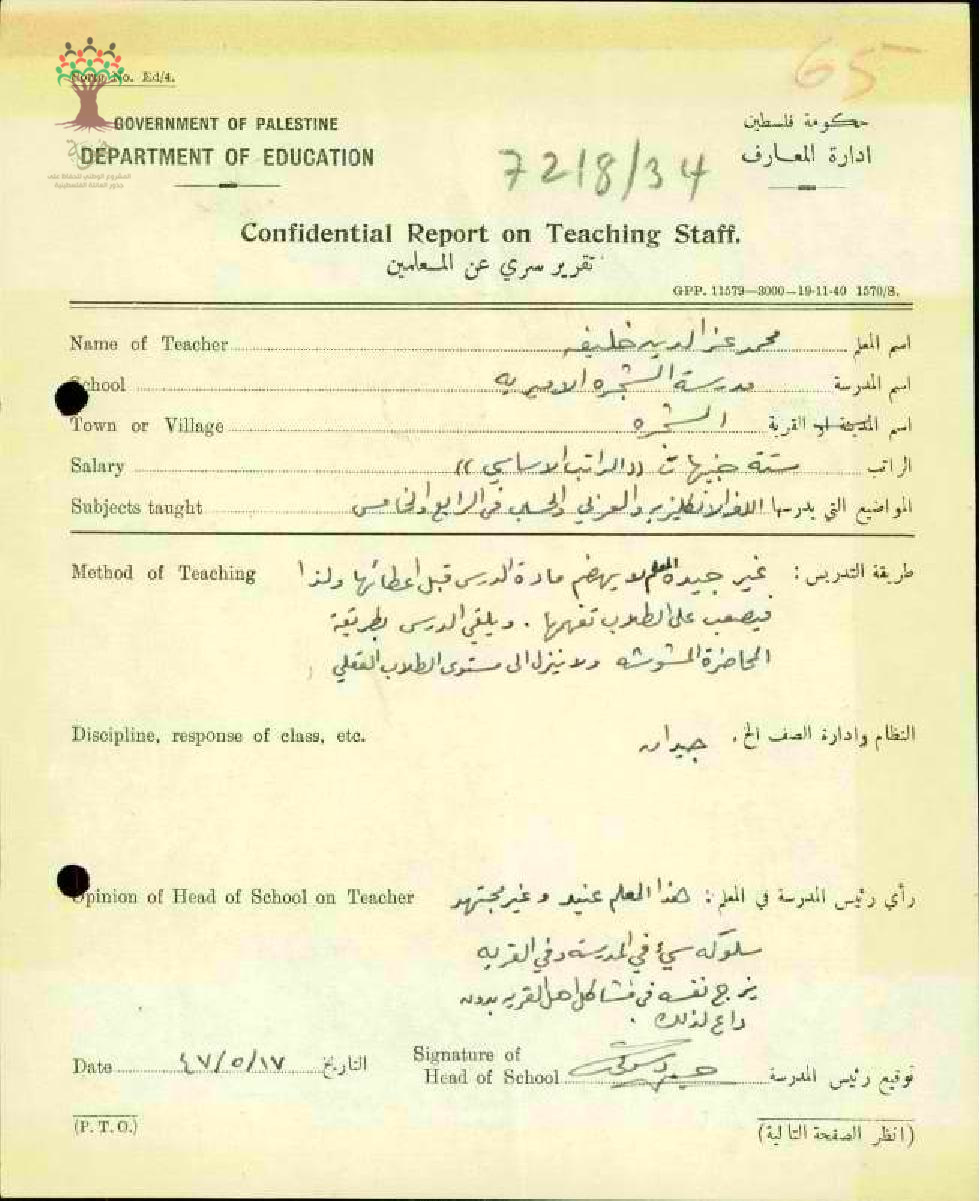 65
Form No. Ed/4.
GOVERNMENT OF PALESTINE
حكومة فلسطين
DEPARTMENT OF EDUCATION
ادارة المعارف
المشروع الوطني للحفاظ على
جذور العائلة الفلسطينية
7218/34
Confidential Report on Teaching Staff.
تقرير سري عن المعلمين
GPP. 11579—3000—19-11-40 1570/S.
Name of Teacher محمد عز الدين خليفه اسم المعلم
School مدرسة الشجره الاميريه اسم المدرسة
Town or Village الشجره اسم المدينة او القرية
Salary ستة جنيهات ((الراتب الاساسي)) الراتب
Subjects taught المواضيع التي يدرسها اللغه الانكليزيه والعربي والحساب في الرابع والخامس
Method of Teaching طريقة التدريس : غير جيدة المعلم لا يهضم مادة الدرس قبل اعطائها ولذا
فيصعب على الطلاب تفهمها . ويلقي الدرس بطريقة
المحاضرة المشوشه ولا ينزل الى مستوى الطلاب العقلي
Discipline, response of class, etc. النظام وادارة الصف الخ . جيدان
Opinion of Head of School on Teacher رأي رئيس المدرسة في المعلم : هذا المعلم عنيد وغير مجتهد
سلوكه سيء في المدرسة وفي القريه
يزج نفسه في مشاكل اهل القريه بدون
داع لذلك .
Date ٤٧/٥/١٧ التاريخ
Signature of
Head of School توقيع رئيس المدرسة
(P. T. O.)
(انظر الصفحة التالية)